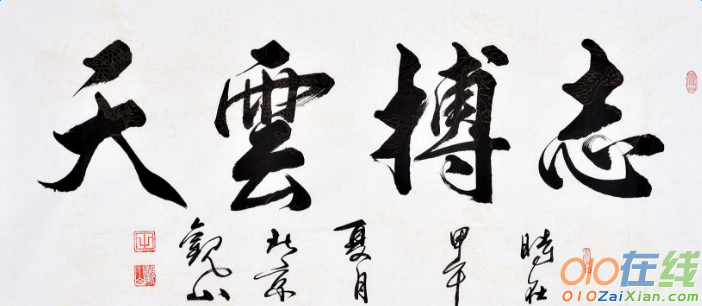 志搏雲天
時在
甲午
夏月
北京
觀山
010在线
010ZaiXian.com